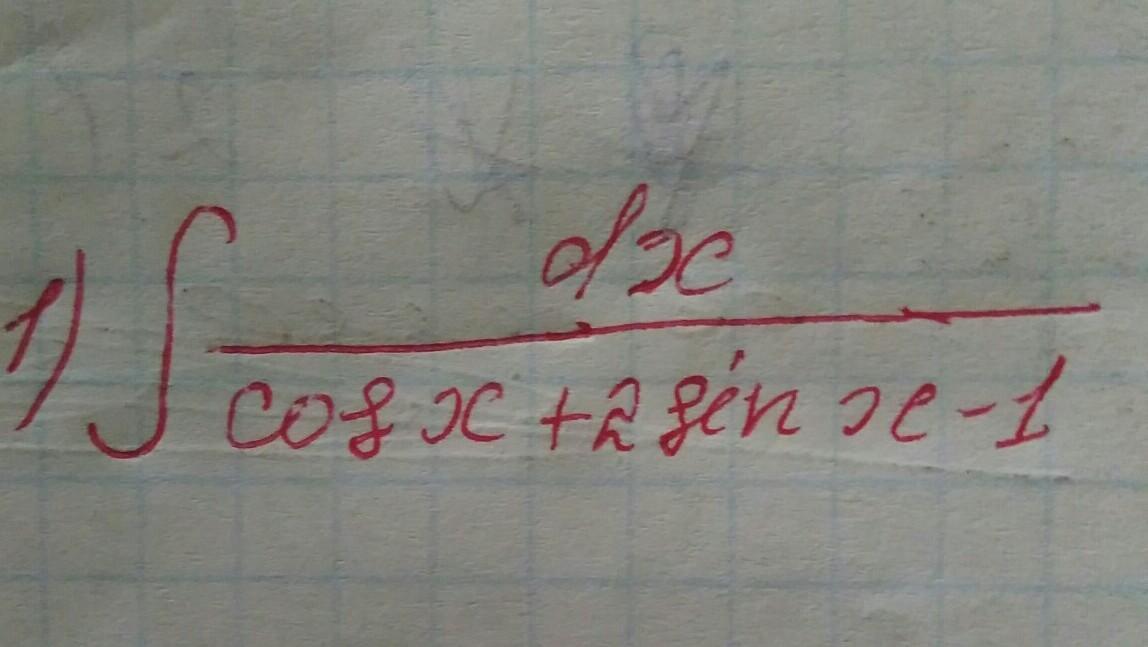 1) ∫ dx
cos x + 2 sin x - 1